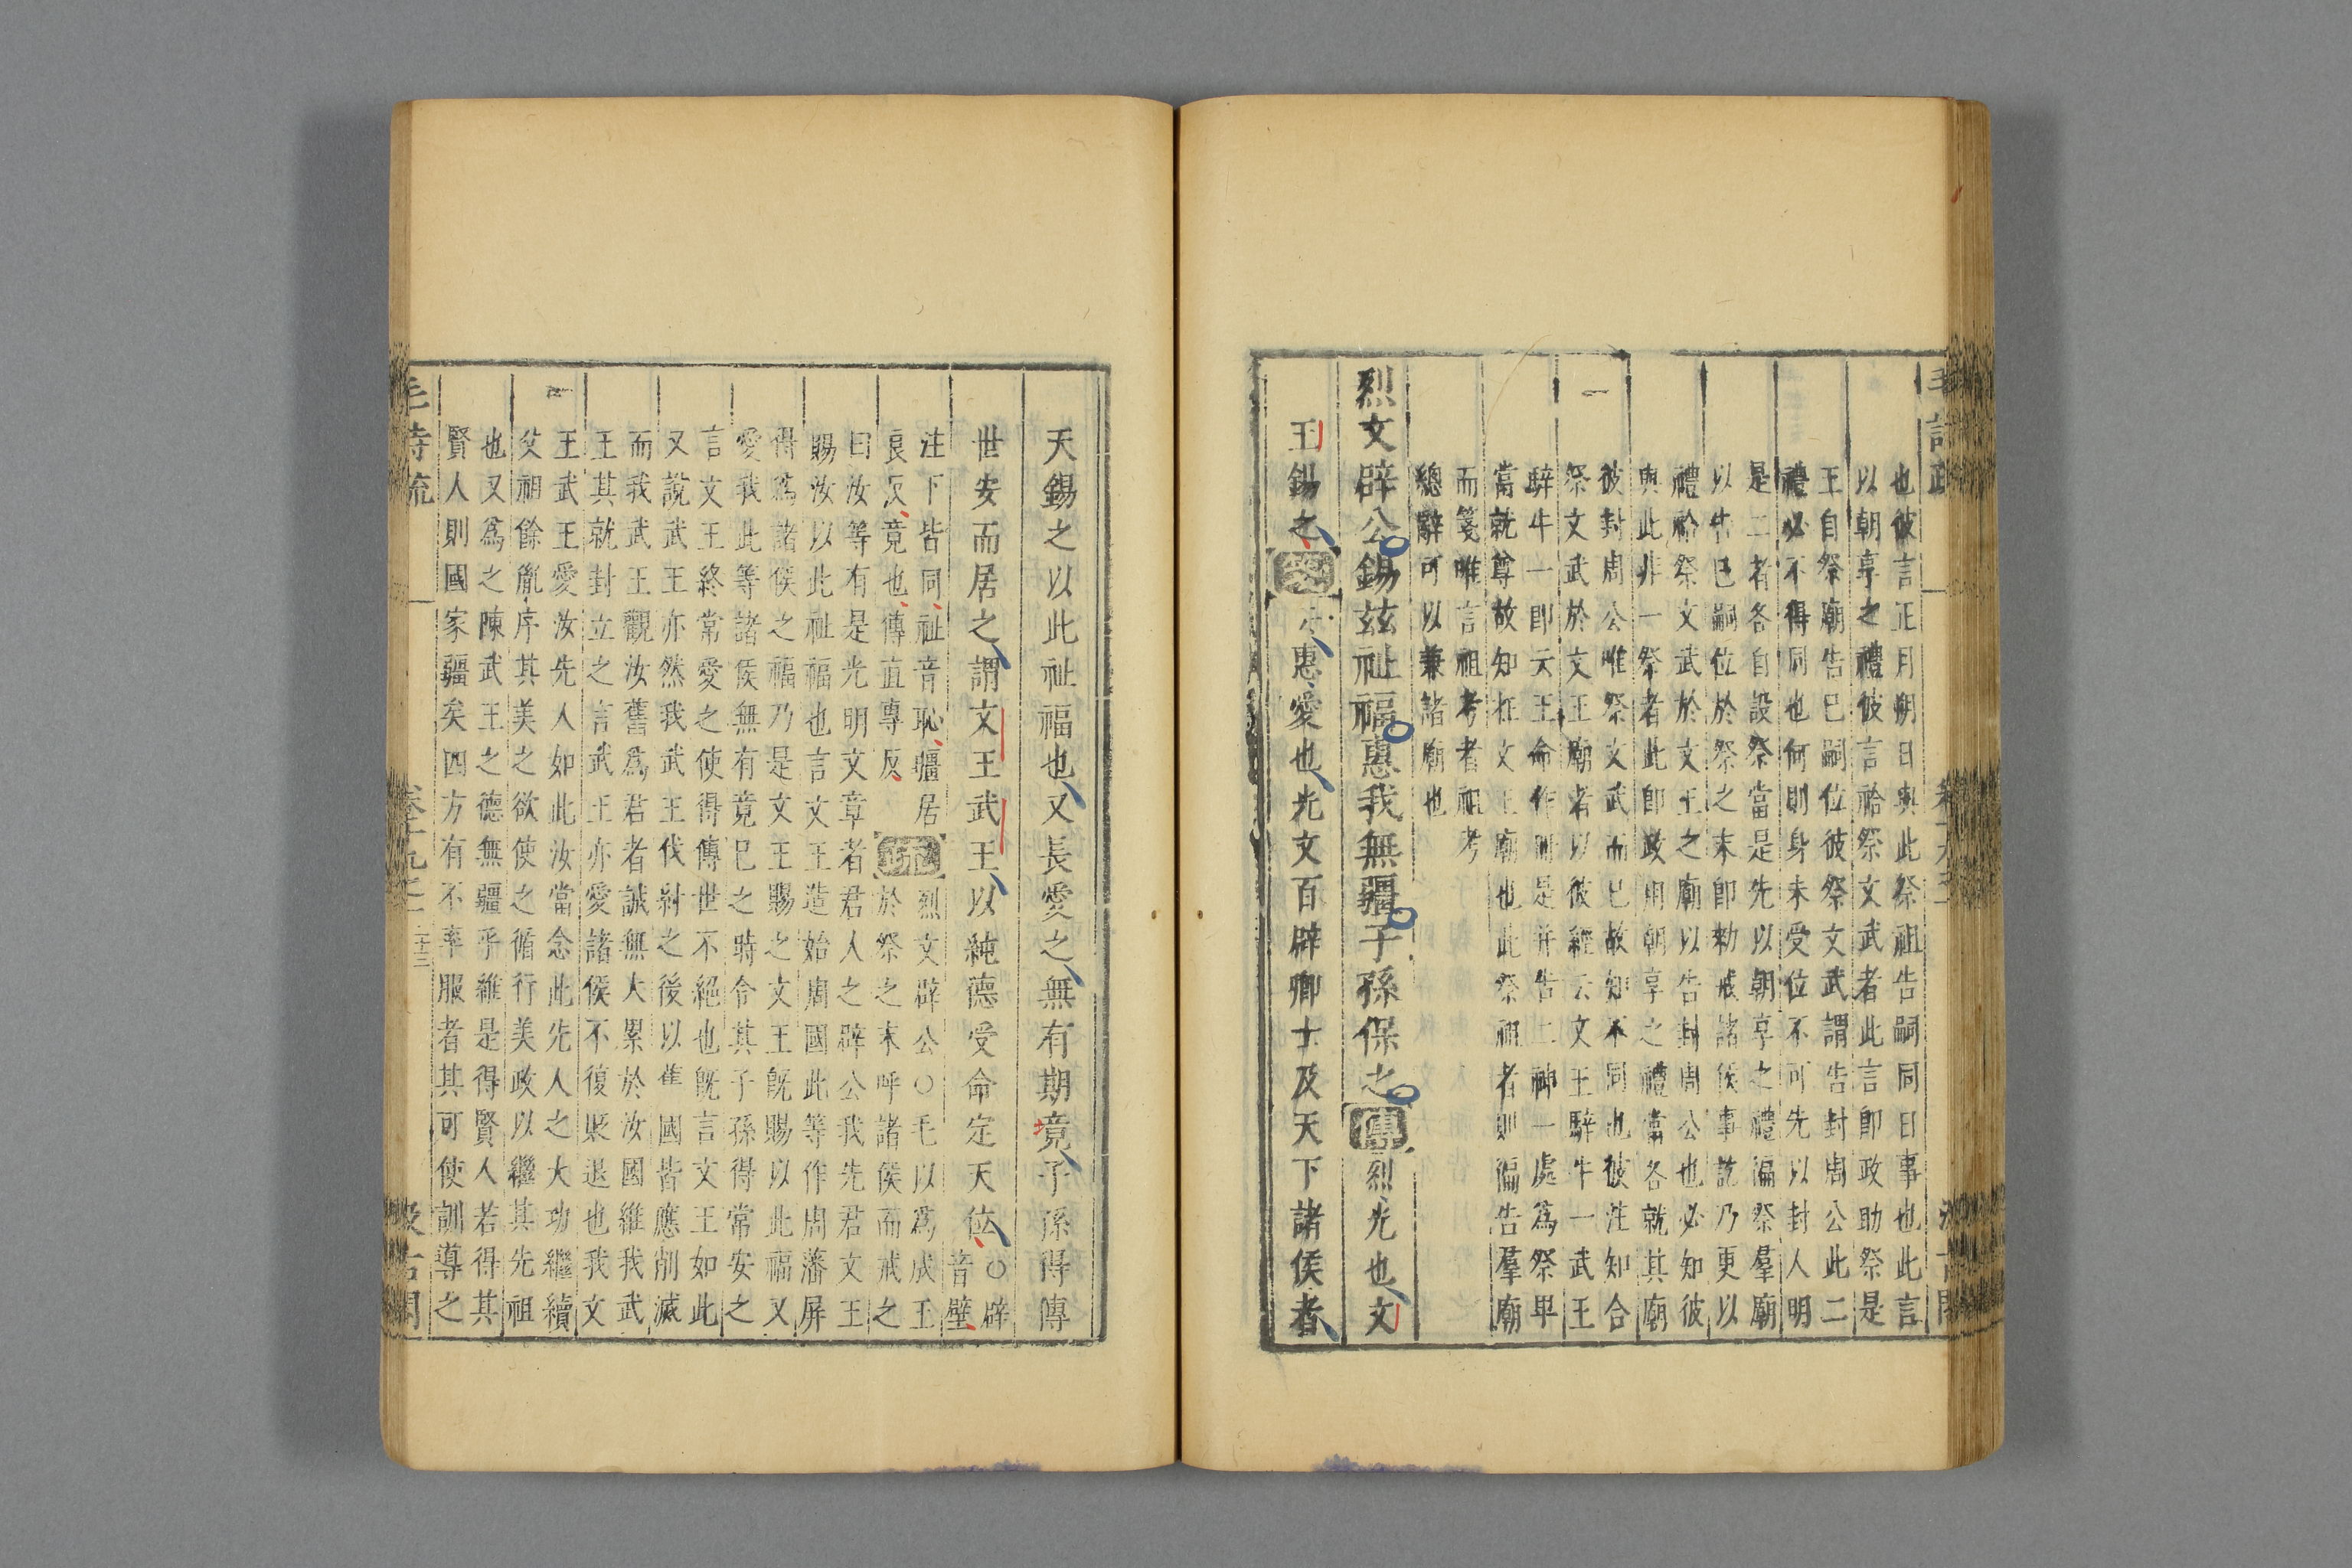 也彼言正月朔日與此祭祖告嗣同日事也此言
以朝享之禮彼言祫祭文武者此言即政助祭是
王自祭廟告巳嗣位彼祭文武謂告封周公此二
禮必不得同也何則身未受位不可先以封人明
是二者各自設祭當是先以朝享之禮徧祭羣廟
以告巳嗣位於祭之末即勑戒諸侯事訖乃更以
禮祫祭文武於文王之廟以告封周公也必知彼
與此非一祭者此即政用朝享之禮當各就其廟
彼封周公唯祭文武而巳故知不同也彼注知合
祭文武於文王廟者以彼經云文王騂牛一武王
騂牛一即云王命作冊是并告二神一處爲祭畢
當就尊故知在文王廟也此祭祖者則徧告羣廟
而箋唯言祖考者祖考
總辭可以兼諸廟也
烈文辟公錫茲祉福惠我無疆子孫保之傳烈光也文
王錫之箋云惠愛也光文百辟卿士及天下諸侯者
天錫之以此祉福也又長愛之無有期竟子孫得傳
世安而居之謂文王武王以純德受命定天位○辟
音璧
注下皆同祉音恥疆居
良反竟也傳直專反
疏烈文辟公○毛以爲成王
於祭之末呼諸侯而戒之
曰汝等有是光明文章者君人之辟公我先君文王
賜汝以此祉福也言文王造始周國此等作周藩屏
得爲諸侯之福乃是文王賜之文王旣賜以此福又
愛我此等諸侯無有竟巳之時令其子孫得常安之
言文王終常愛之使得傳世不絕也旣言文王如此
又說武王亦然我武王伐紂之後以舊國皆應削滅
而我武王觀汝舊爲君者誠無大累於汝國維我武
王其就封立之言武王亦愛諸侯不復貶退也我文
王武王愛汝先人如此汝當念此先人之大功繼續
父祖餘胤序其美之欲使之循行美政以繼其先祖
也又爲之陳武王之德無疆乎維是得賢人若得其
賢人則國家疆矣四方有不率服者其可使訓導之